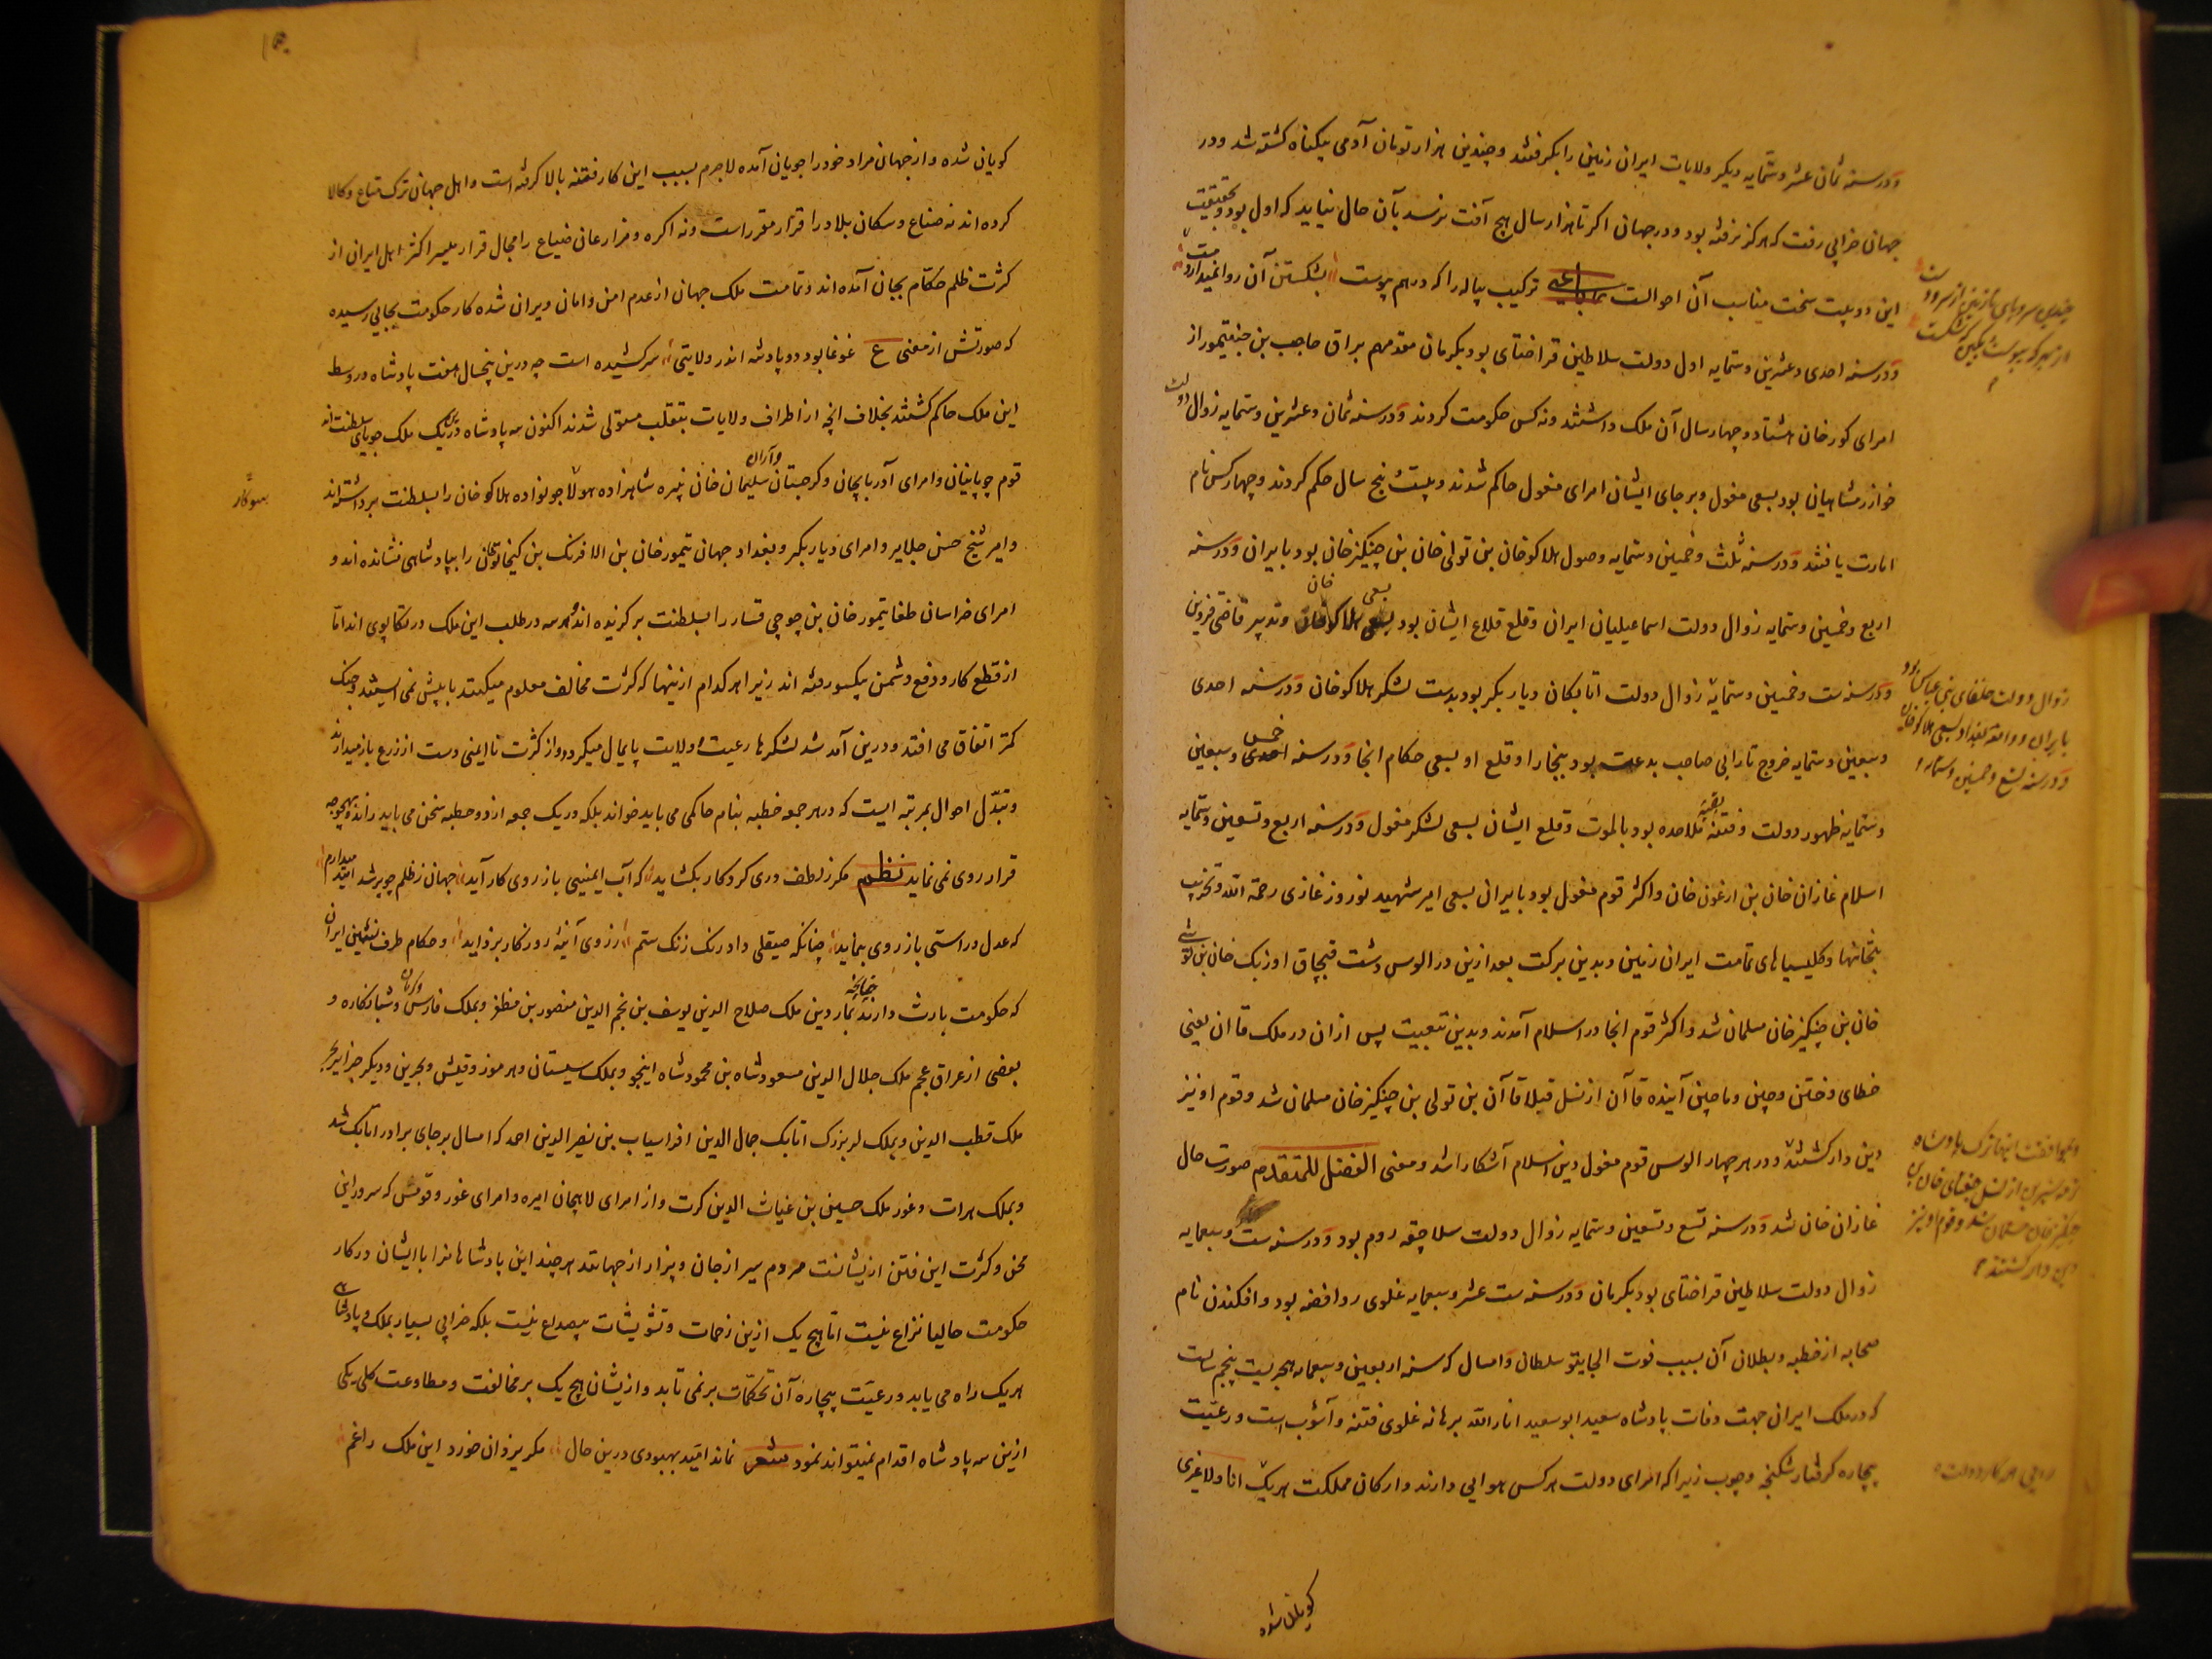 ودر سنه ثمان عشر وستمایه دیکر ولایات ایران زمین را بکرفتند و چندین هزار تومان آدمی بیکناه کشته شد و در
جهان خرابی رفت که هرکز نرفته بود و در جهان اکر تا هزار سال هیچ آفت نرسد بآن حال نیاید که اول بود و بحقیقت
این دو بیت سخت مناسب آن احوالست رباعیه ترکیب پیاله را که درهم پیوست بشکستن آن روا نمیدارد مست
چندین سر و پای نازنین از سر و دست
از مهر که پیوست بکین که شکست
ودر سنه احدی وعشرین وستمایه اول دولت سلاطین قراختای بود بکرمان مقدمهم براق حاجب بن جنغتیمور از
امرای کورخان هشتاد و چهار سال آن ملک داشتند و نه کس حکومت کردند ودر سنه ثمان وعشرین وستمایه زوال دولت
خوارزمشاهیان بود بسعی مغول و بر جای ایشان امرای مغول حاکم شدند و بیست پنج سال حکم کردند و چهار کس نام
امارت یافتند ودر سنه ثلث وخمسین وستمایه وصول هلاکو خان بن تولی خان بن چنکیز خان بود بایران ودر سنه
اربع وخمسین وستمایه زوال دولت اسماعیلیان ایران و قلع قلاع ایشان بود بسعی هلاکو خان و تدبیر قاضی قزوین
زوال دولت خلفای بنی عباس بود
بایران و واقعه بغداد بسعی هلاکو خان
ودر سنه تسع وخمسین وستمایه
ودر سنه ست وخمسین وستمایه زوال دولت اتابکان دیاربکر بود بدست لشکر هلاکو خان ودر سنه احدی
وسبعین وستمایه خروج تارابی صاحب بدعت بود ببخارا و قلع او بسعی حکام انجا ودر سنه خمس وسبعین
وستمایه ظهور دولت و فتنه بقیه ملاحده بود بالموت و قلع ایشان بسعی لشکر مغول ودر سنه اربع وتسعین وستمایه
اسلام غازان خان بن ارغون خان و اکثر قوم مغول بود بایران بسعی امیر شهید نوروز غازی رحمة الله و تخریب
بتخانها و کلیسیاهای تمامت ایران زمین و بدین برکت بعد ازین در الوس دشت قبچاق اوزبک خان بن توشی
خان بن چنکیز خان مسلمان شد و اکثر قوم انجا در اسلام آمدند و بدین تتبعیت پس ازان در ملک قاان یعنی
خطای و ختن و چین و ماچین آینده قاآن از نسل قبلا قاآن بن تولی بن چنکیز خان مسلمان شد و قوم او نیز
دین دار کشتند و در هر چهار الوس قوم مغول دین اسلام آشکارا شد و معنی الفضل للمتقدم صورت حال
چنکیز خان مسلمان شد و قوم او نیز
دین دار کشتند
غازان خان شد ودر سنه تسع وتسعین وستمایه زوال دولت سلاجقه روم بود ودر سنه ست وسبعمایه
زوال دولت سلاطین قراختای بود بکرمان ودر سنه ست عشر وسبعمایه غلوی روافضه بود و افکندن نام
صحابه از خطبه و بطلان آن بسبب فوت الجایتو سلطان و امسال که سنه اربعین وسبعمایه هجریست پنجم سالست
که در ملک ایران جهت وفات پادشاه سعید ابو سعید انار الله برهانه غلوی فتنه و آشوب است و رعیت
بیچاره کرفتار شکنجه و چوب زیرا که امرای دولت هر کس هوایی دارند و ارکان مملکت هر یک انا ولا غیری
کویان شده
کویان شده و از جهان مراد خود را جویان آمده لاجرم بسبب این کار فتنه بالا کرفته است و اهل جهان ترک متاع و کالا
کرده اند نه صناع و سکان بلاد را قرار مقرر است و نه اکره و مزارعان ضیاع را مجال قرار میسر اکثر اهل ایران از
کثرت ظلم حکام بجان آمده اند و تمامت ملک جهان از عدم امن و امان ویران شده کار حکومت بجایی رسیده
که صورتش از معنی ع غوغا بود دو پادشه اندر ولایتی سر کشیده است چه درین پنجسال هفت پادشاه در وسط
این ملک حاکم کشتند بخلاف انچه از اطراف ولایات بتغلب مستولی شدند اکنون سه پادشاه در یک ملک جویای سلطنت اند
قوم چوپانیان و امرای آدربایجان و کرجستان و آران سلیمان خان نبیره شاهزاده هولاجو نواده هلاکو خان را بسلطنت برداشته اند
و امیر شیخ حسن جلایر و امرای دیاربکر و بغداد جهان تیمور خان بن الافرنک بن کیخاتو خان را بپادشاهی نشانده اند و
امرای خراسان طغایتمور خان بن چوچی قسار را بسلطنت بر کزیده اند و هر سه در طلب این ملک در تکاپوی اند اما
از قطع کار و دفع دشمن یکسو رفته اند زیرا هر کدام ازینها که کثرت مخالف معلوم میکنند با پیش نمی ایستند و جنک
کمتر اتفاق می افتد و درین آمد شد لشکرها رعیت و ولایت پایمال میکردد و از کثرت ناایمنی دست از زرع باز میدارند
و تبدل احوال بمرتبه ایست که در هر جمعه خطبه بنام حاکمی می باید خواند بلکه در یک جمعه از دو خطبه سخن می باید راند و بهیچوجه
قرار روی نمی نماید نظم مکر ز لطف دری کردکار بکشاید که آب ایمنیی باز روی کار آید جهان ز ظلم چو پر شد امید میدارم
که عدل و راستی باز روی بنماید چنانکه صیقلی داد رنک زنک ستم ز روی آینه روزکار بزداید و حکام طرف نشین ایران
که حکومت بارث دارند چنانچه بماردین ملک صلاح الدین یوسف بن نجم الدین منصور بن مظفر و بملک فارس و کرمان و شبانکاره و
بعضی از عراق عجم ملک جلال الدین مسعود شاه بن محمود شاه اینجو و بملک سیستان و هرموز و قیش و بحرین و دیکر جزایر بحر
ملک قطب الدین و بملک لر بزرک اتابک جمال الدین افراسیاب بن نصر الدین احمد که امسال بر جای برادر اتابک شد
و بملک هرات و غور ملک حسین بن غیاث الدین کرت و از امرای لاهیجان امیره و امرای غور و قومش که سرور این
محن و کثرت این فتن ازیشانست مردم سیر از جان و بیزار از جهانند هر چند این پادشاهانرا با ایشان در کار
حکومت حالیا نزاع نیست اما هیچ یک ازین زحمات و تشویشات بیصداع نیست بلکه خرابی بسیار بملک و پادشاهی
هر یک راه می یابد و رعیت بیچاره آن تحکمات بر نمی تابد و ازیشان هیچ یک بر مخالفت و مطاوعت کلی یکی
ازین سه پادشاه اقدام نمیتواند نمود شعر نماند امید بهبودی درین حال مکر یزدان خورد این ملک را غم